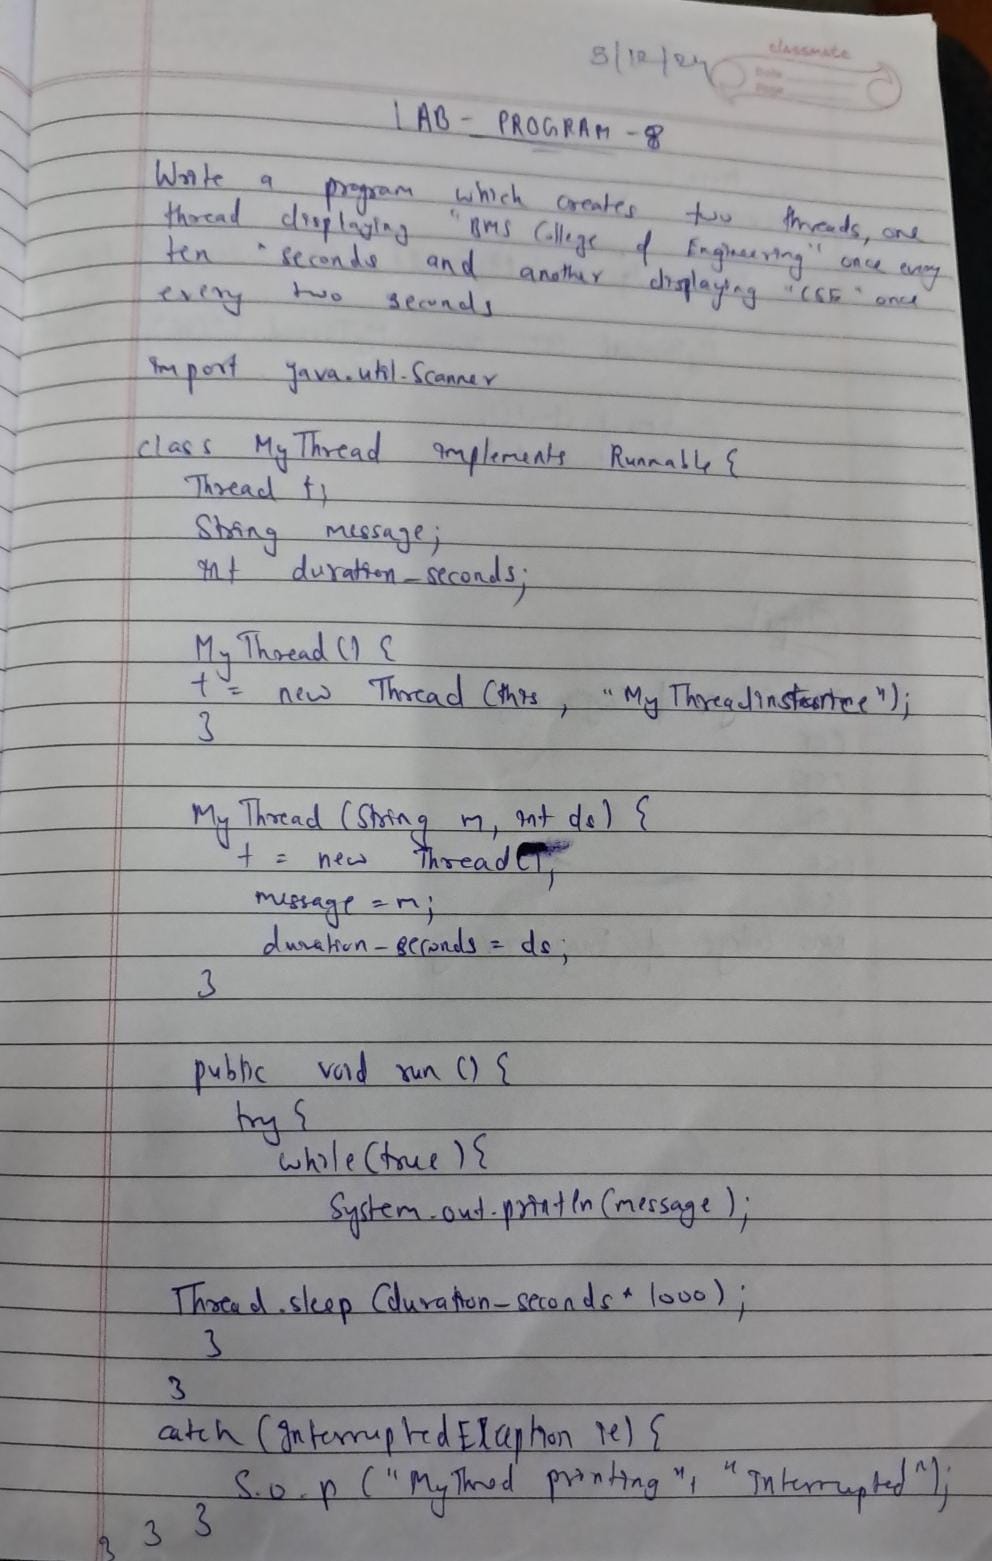 3/12/24
classmate
Date
Page
LAB - PROGRAM - 8
Write a program which creates two threads, one
thread displaying "BMS College of Engineering" once every
ten seconds and another displaying "CSE" once
every two seconds
import java.util.Scanner
class MyThread implements Runnable {
Thread t;
String message;
int duration_seconds;
MyThread () {
t = new Thread (this, "MyThreadinstance");
}
MyThread (String m, int ds) {
t = new Thread
message = m;
duration_seconds = ds;
}
public void run () {
try {
while (true) {
System.out.println (message);
Thread.sleep (duration_seconds * 1000);
}
}
catch (InterruptedException ie) {
S.o.p ("MyThred printing", "Interrupted");
} } }